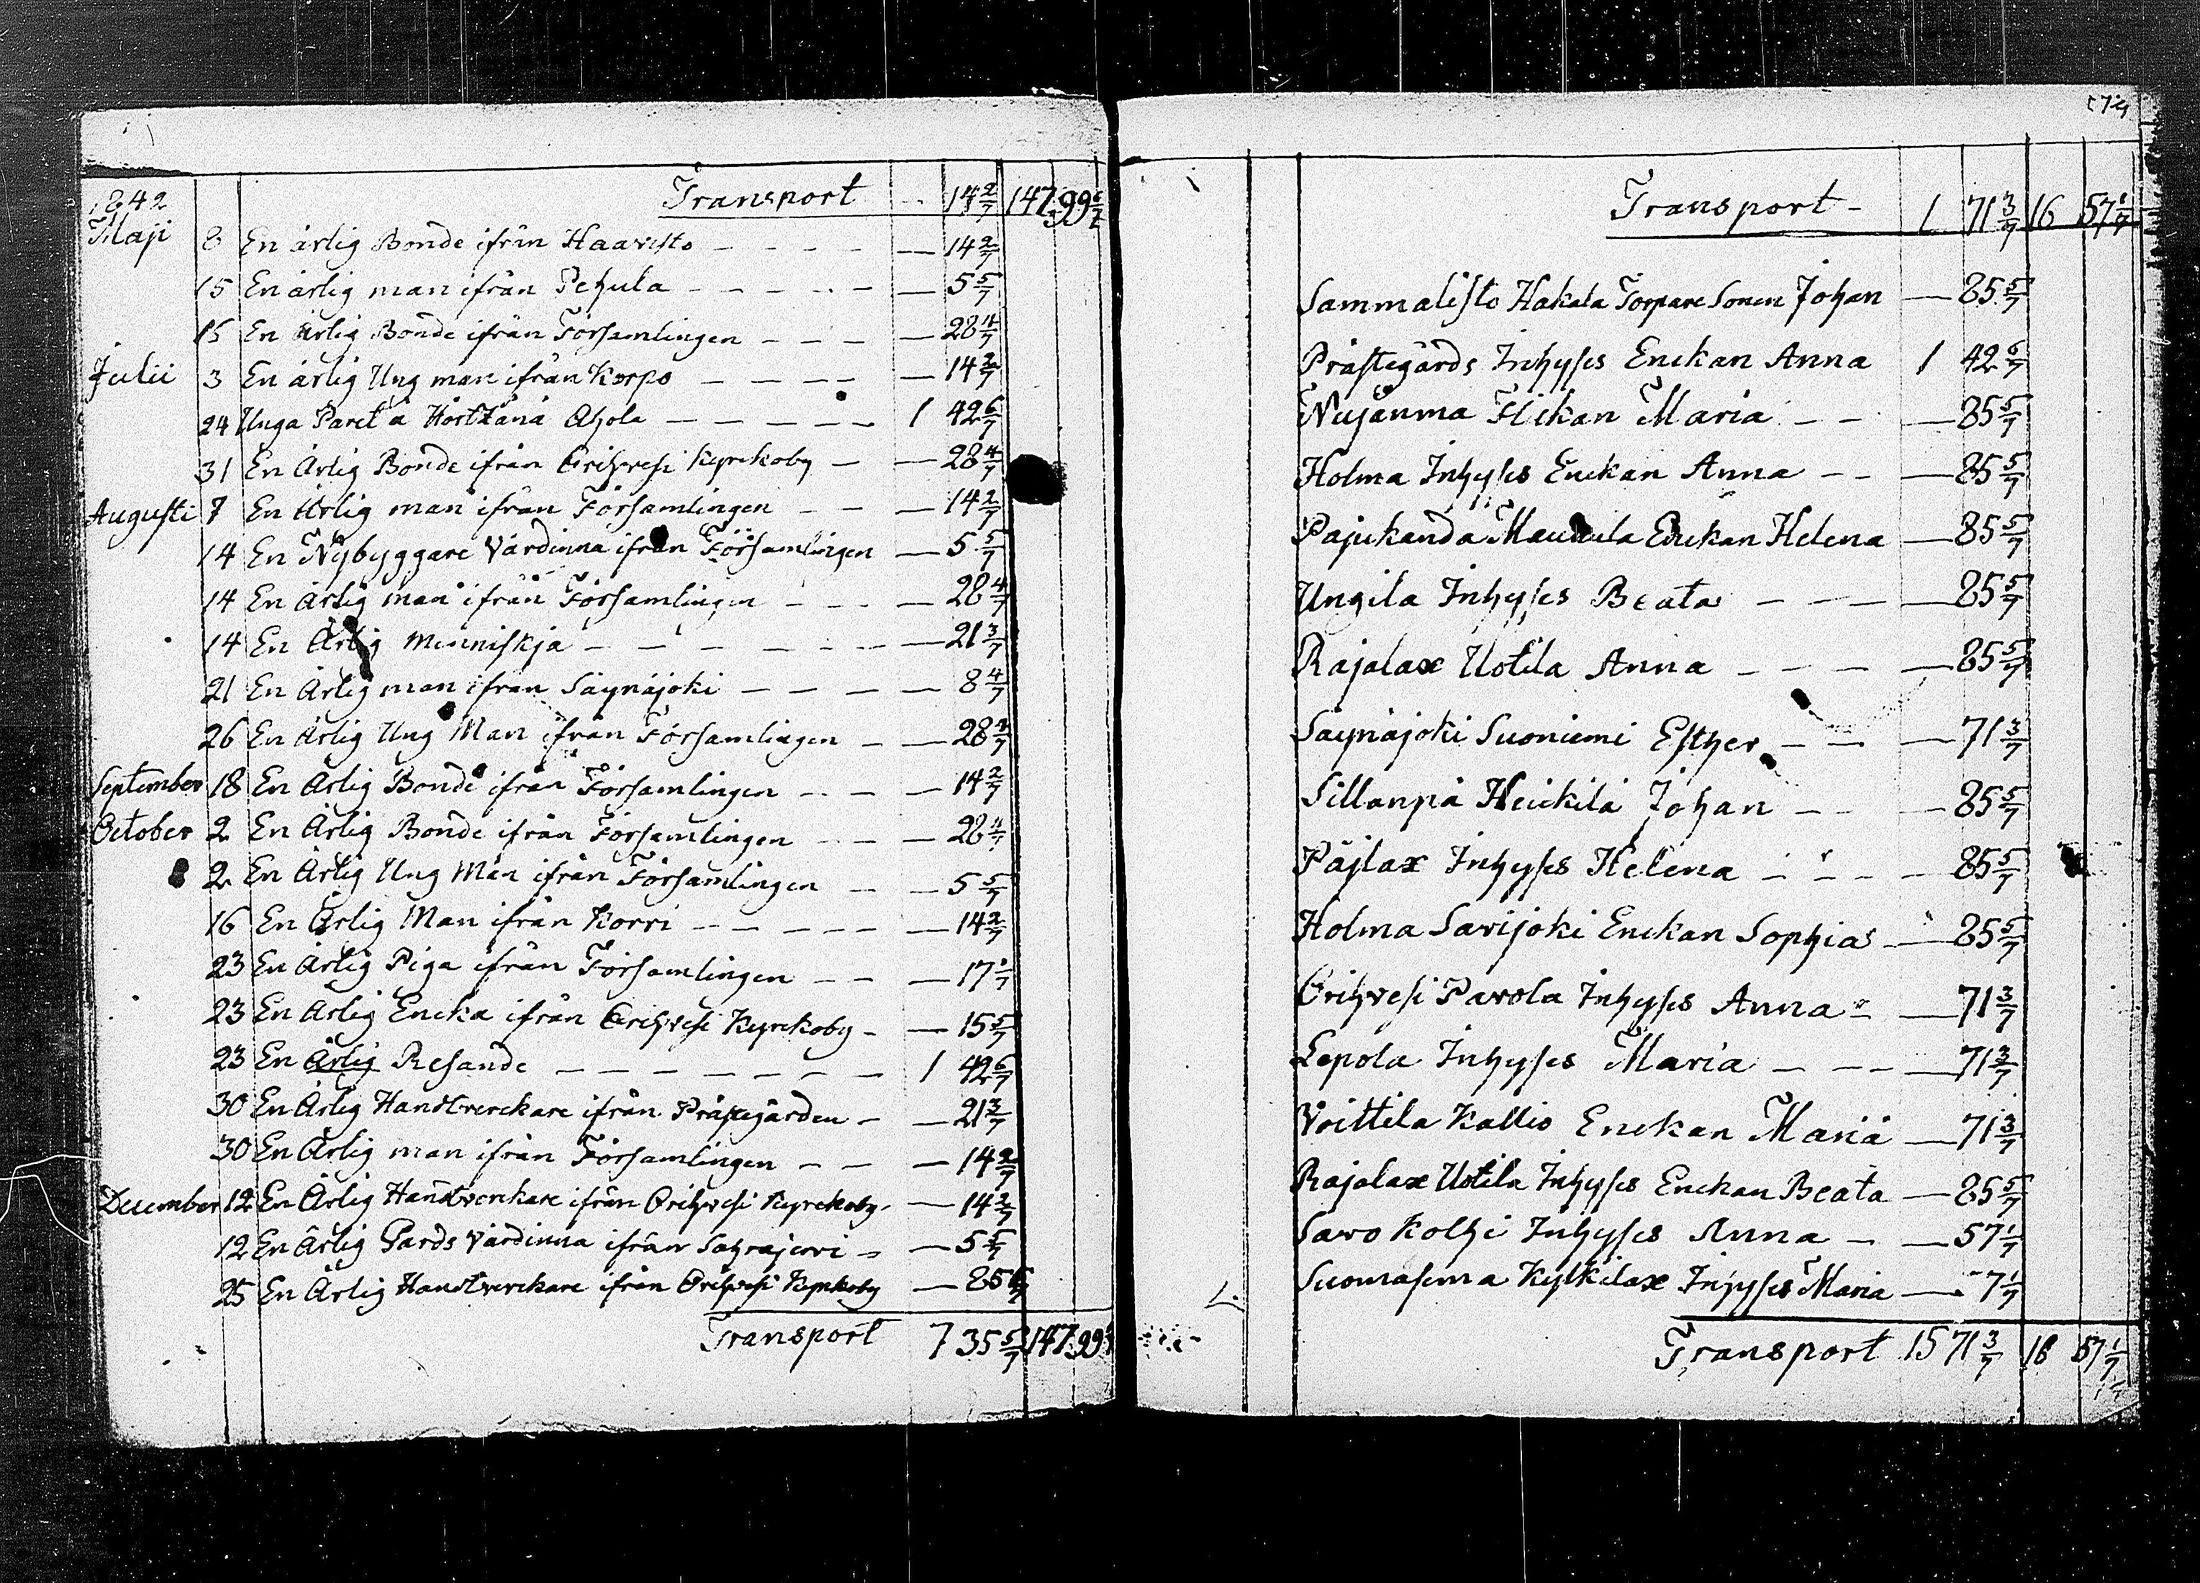 Transport - 14 2/7 147. 99 6/7
1842
Maji 8 En ärlig Bonde ifrån Haavisto — — — — 14 2/7
15 En ärlig man ifrån Pehula — — — — 5 5/7
15 En Ärlig Bonde ifrån Församlingen — — — 28 4/7
Julii 3 En ärlig Ung man ifrån Korpo — — — — 14 2/7
24 Unga Paret å Ahola — — — — — 1 42 6/7
31 En Ärlig Bonde ifrån Orihvesi Kyrckoby — — 28 4/7
Augusti 7 En Ärlig man ifrån Församlingen — — — 14 2/7
14 En Nybyggare Värdinna ifrån Församlingen — 5 5/7
14 En Ärlig man ifrån Församlingen — — — 28 4/7
14 En Ärlig Menniskja — — — — — — 21 3/7
21 En Ärlig man ifrån Säynäjoki — — — — 8 4/7
26 En Ärlig Ung Man ifrån Församlingen — — 28 4/7
September 18 En Ärlig Bonde ifrån Församlingen — — — 14 2/7
October 2 En Ärlig Bonde ifrån Församlingen — — — 28 4/7
2 En Ärlig Ung Man ifrån Församlingen — — 5 5/7
16 En Ärlig Man ifrån Korri — — — — — 14 2/7
23 En Ärlig Piga ifrån Församlingen — — — 17 1/7
23 En Ärlig Encka ifrån Orihvesi Kyrckoby — — 15 5/7
23 En Ärlig Resande — — — — — — — 1 42 6/7
30 En Ärlig Handtverckare ifrån Prästegården — — 21 3/7
30 En Ärlig man ifrån Församlingen — — — 14 2/7
December 12 En Ärlig Handtverckare ifrån Orihvesi Kyrckoby — 14 2/7
12 En Ärlig Gårds Värdinna ifrån Sahrajervi — — 5 5/7
25 En Ärlig Handtverckare ifrån Orihvesi Kyrckoby — 85 5/7
Transport 7 35 5/7 147. 99 6/7
Transport — 1 71 3/7 16 57 1/7
Sammalisto Hakala Torpare Sonen Johan — 85 5/7
Prästegårds Inhyses Enckan Anna 1 42 6/7
Flickan Maria — — — 85 5/7
Holma Inhyses Enckan Anna — — — 85 5/7
Pajukanda Enckan Helena — 85 5/7
Ungila Inhyses Beata — — — — 85 5/7
Rajalax Uotila Anna — — — — 85 5/7
Säynäjoki Suoniemi Esther — — — 71 3/7
Sillanpä Heickilä Johan — — — 85 5/7
Päjlax Inhyses Helena — — — — 85 5/7
Holma Savijoki Enckan Sophia — 85 5/7
Orihvesi Pavola Inhyses Anna — — 71 3/7
Lepola Inhyses Maria — — — — 71 3/7
Voittila Kallio Enckan Maria — 71 3/7
Rajalax Uotila Inhyses Enckan Beata — 85 5/7
Savo Kolhi Inhyses Anna — — 57 1/7
Suomasema Inhyses Maria — 7 1/7
Transport 15 71 3/7 16 57 1/7